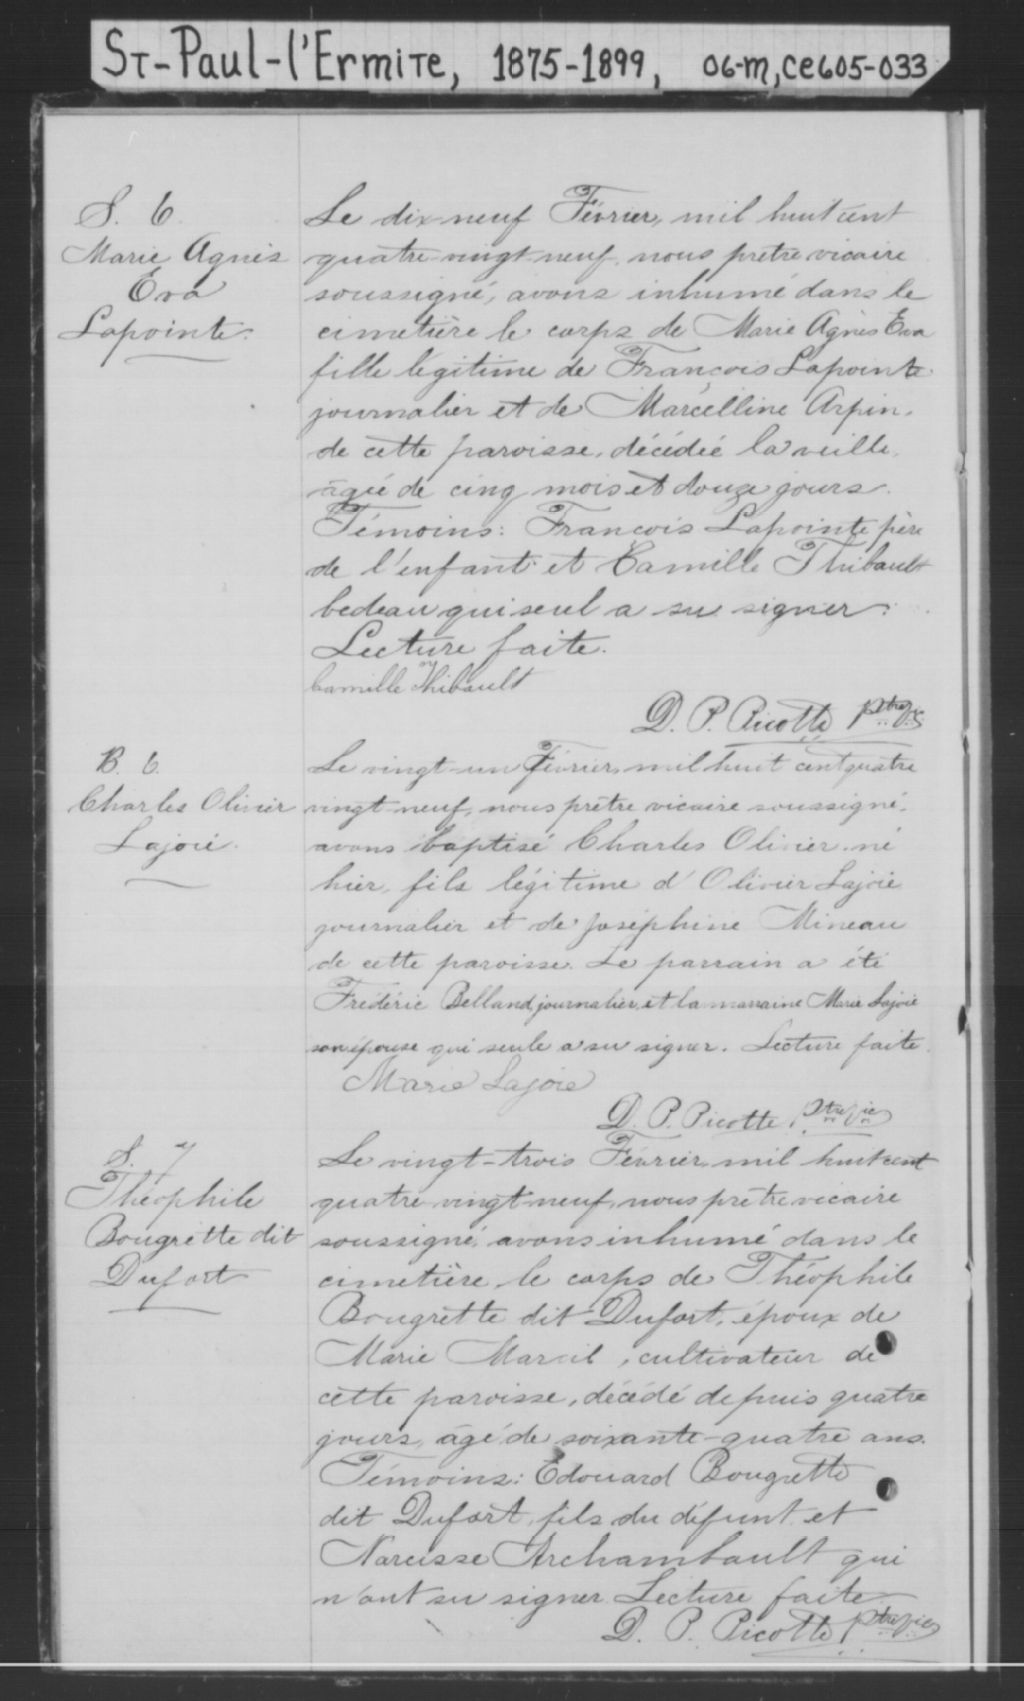 ST-Paul-l'ErmiTe, 1875-1899, 06-M, CE605-033
S. 6.
Marie Agnès
Eva
Lapointe.
Le dix-neuf Février, mil huit cent
quatre-vingt-neuf, nous prêtre vicaire
soussigné, avons inhumé dans le
cimetière le corps de Marie Agnès Eva
fille légitime de François Lapointe
journalier et de Marcelline Arpin,
de cette paroisse, décédée la veille,
âgée de cinq mois et douze jours.
Témoins: François Lapointe père
de l'enfant et Camille Thibault
bedeau qui seul a su signer.
Lecture faite.
Camille Thibault
D. P. Picotte ptre vic
B. 6.
Charles Olivier
Lajoie.
Le vingt-un Février, mil huit cent quatre
vingt-neuf, nous prêtre vicaire soussigné,
avons baptisé Charles Olivier né
hier, fils légitime d'Olivier Lajoie
journalier et de Joséphine Mineau
de cette paroisse. Le parrain a été
Frédéric Belland, journalier, et la marraine Marie Lajoie
son épouse qui seule a su signer. Lecture faite.
Marie Lajoie
D. P. Picotte ptre vic
S. 7
Théophile
Bougrette dit
Dufort
Le vingt-trois Février, mil huit cent
quatre-vingt-neuf, nous prêtre vicaire
soussigné, avons inhumé dans le
cimetière le corps de Théophile
Bougrette dit Dufort, époux de
Marie Marcil, cultivateur de
cette paroisse, décédé depuis quatre
jours, âgé de soixante-quatre ans.
Témoins: Edouard Bougrette
dit Dufort, fils du défunt et
Narcisse Archambault qui
n'ont su signer. Lecture faite
D. P. Picotte ptre vic